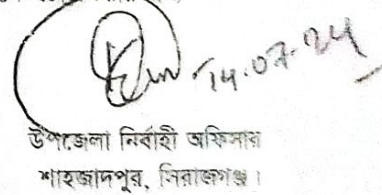 14.07.24
উপজেলা নির্বাহী অফিসার
শাহজাদপুর, সিরাজগঞ্জ।